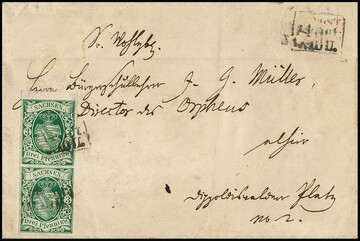 Sr. Wohlgb.
Herrn Bürgerschullehrer J. G. Müller,
Director des Orpheus
allhier
Dippoldiswaldaer Platz
no 2.
SACHSEN
Drei Pfennige
SACHSEN
Drei Pfennige